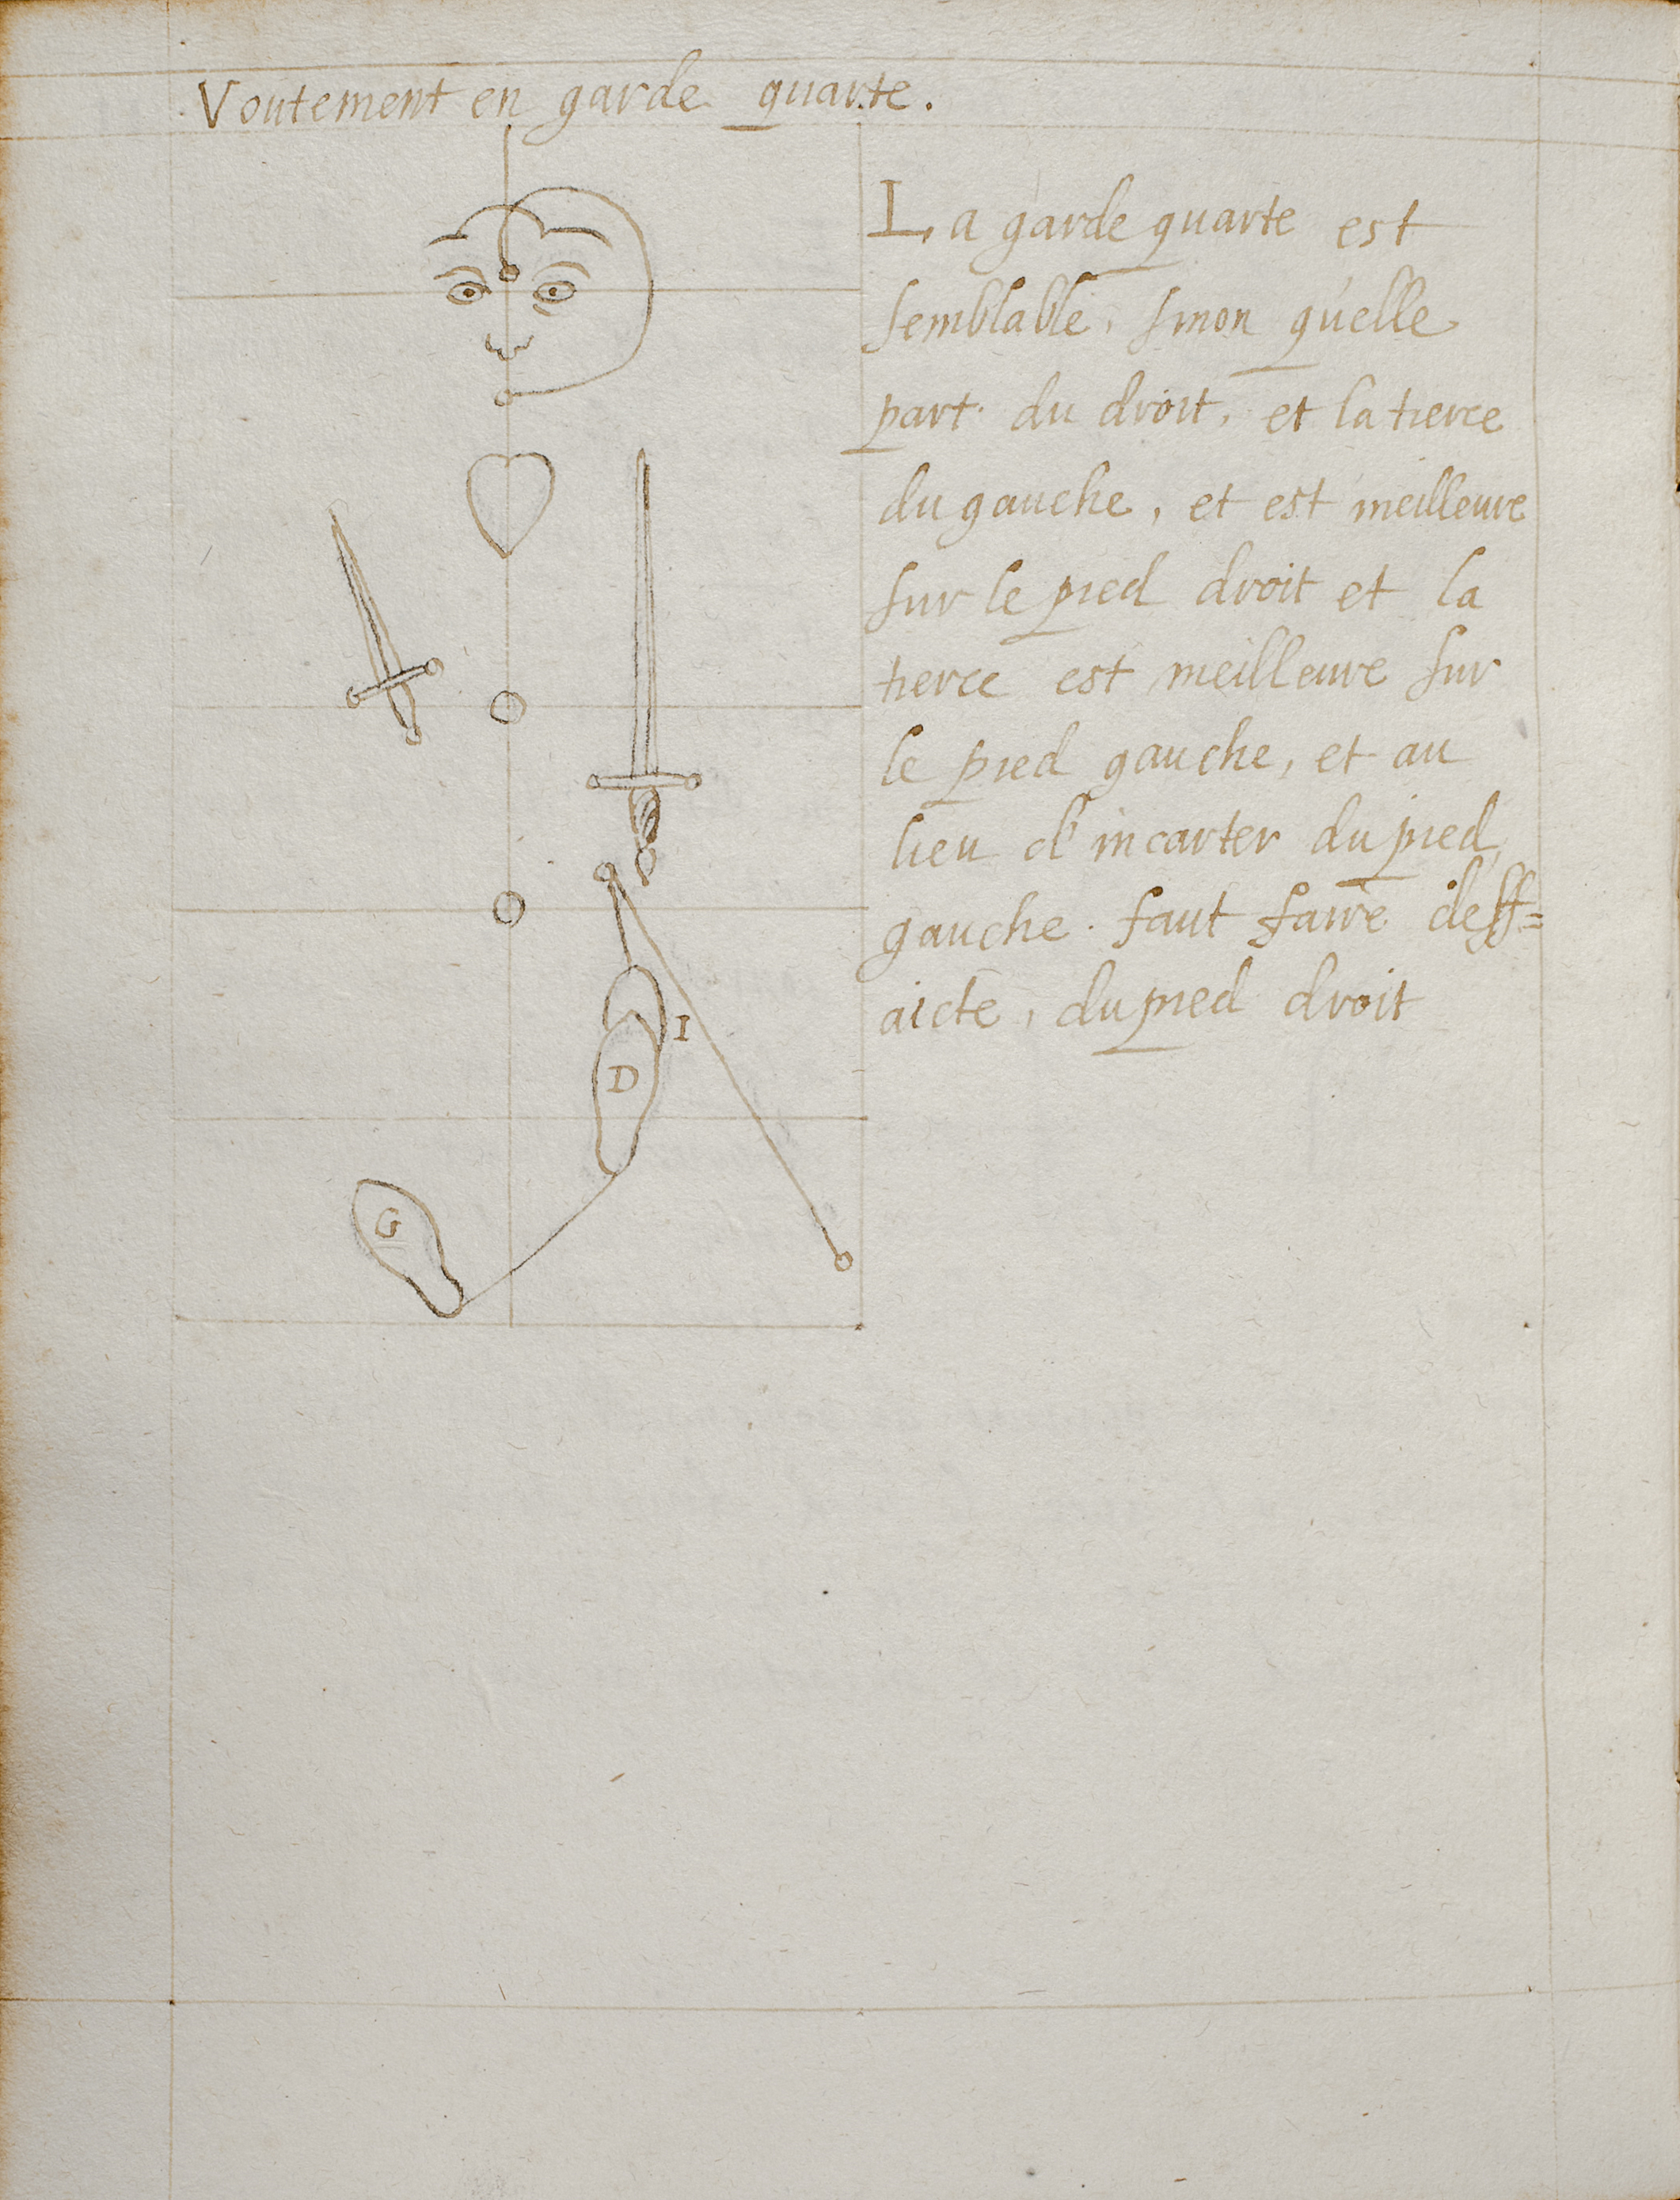 Voutement en garde quarte.
La garde quarte est
semblable, sinon qu'elle
part du droit, et la tierce
du gauche, et est meilleure
sur le pied droit et la
tierce est meilleure sur
le pied gauche, et au
lieu d'incarter du pied
gauche faut faire deff=
aicte, du pied droit
I
D
G